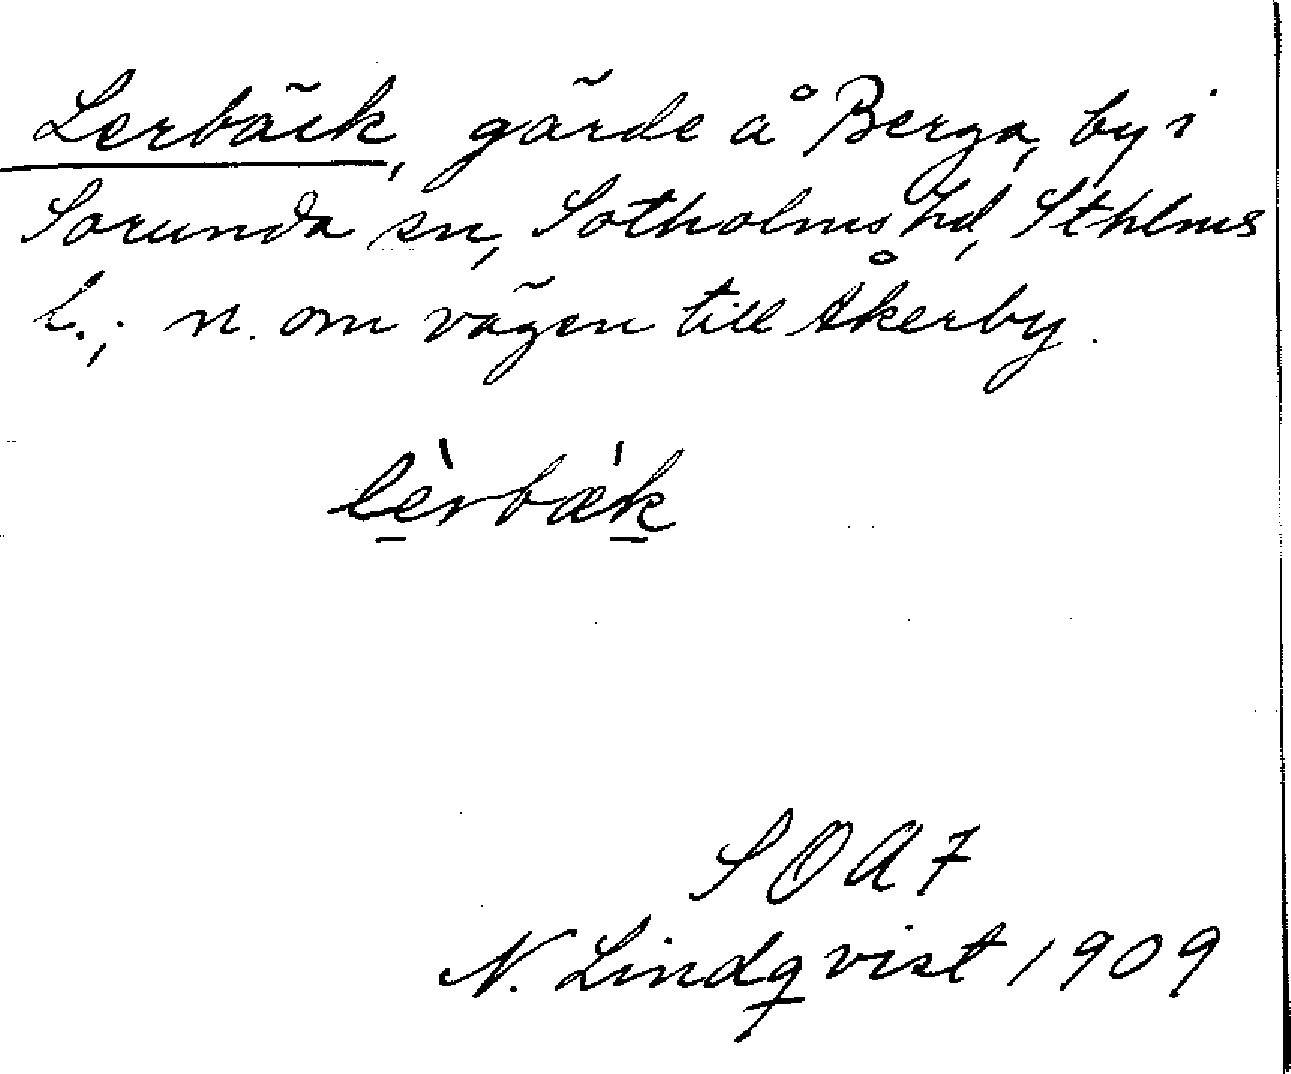 Lerbäck, gärde å Berga, by i
Sorunda sn, Sotholms hd, Sthlms
l.; n. om vägen till Åkerby.
lèrbæ̀k
S O A 7
N. Lindqvist 1909